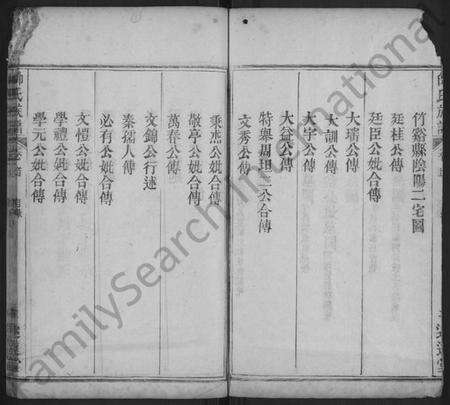 竹谿縣陰陽二宅圖
廷桂公傳
廷臣公妣合傳
大瑞公傳
大訓公傳
大字公傳
大益公傳
特舉周坦三公合傳
文秀公傳
秉杰公妣合傳
敬亭公妣合傳
萬春公傳
文錦公行述
秦孺人傳
必有公妣合傳
文愷公妣合傳
學禮公妣合傳
學元公妣合傳
FamilySearch International